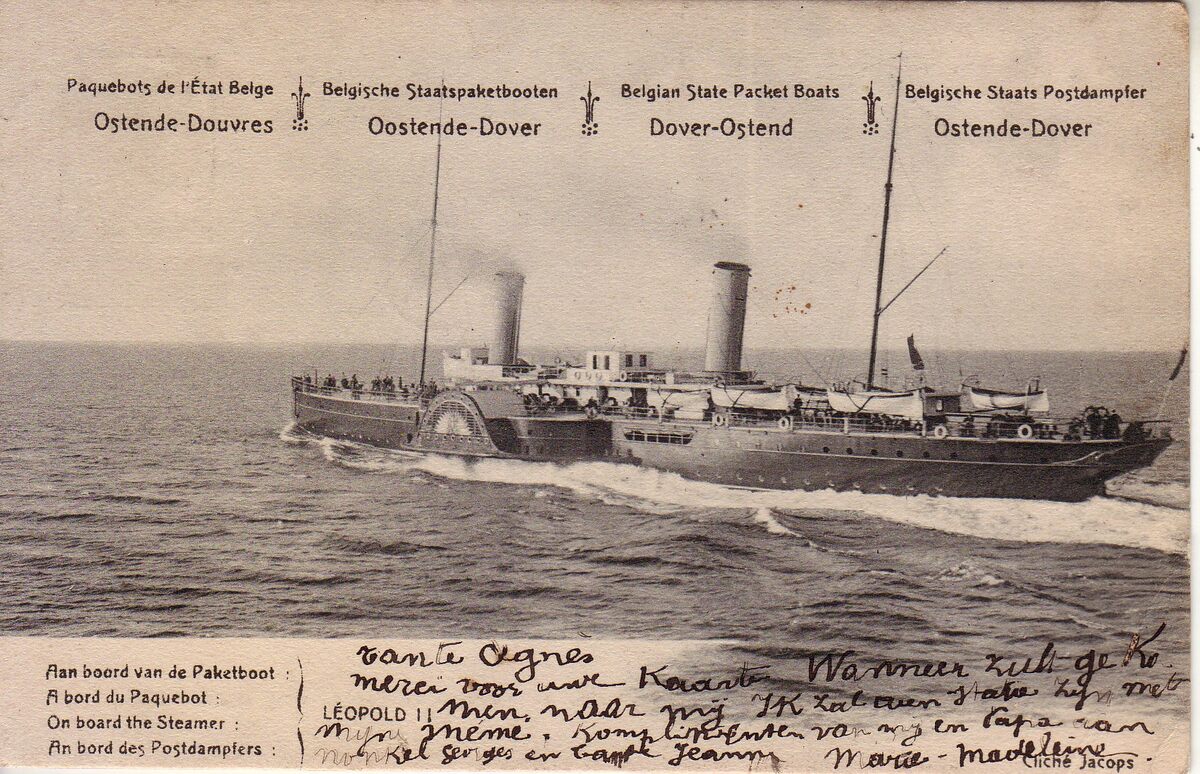 Paquebots de l'État Belge
Ostende-Douvres
Belgische Staatspaketbooten
Oostende-Dover
Belgian State Packet Boats
Dover-Ostend
Belgische Staats Postdampfer
Ostende-Dover
Aan boord van de Paketboot :
A bord du Paquebot :
On board the Steamer :
An bord des Postdampfers :
LÉOPOLD II
tante Agnes
merci voor uwe Kaart. Wanneer zult ge Ko
men, naar mij IK zal aan statie zijn met
mijn Meme. Komplimenten van mij en Papa aan
nonkel Georges en tante Jeanne Marie-Madeleine
Cliché Jacops